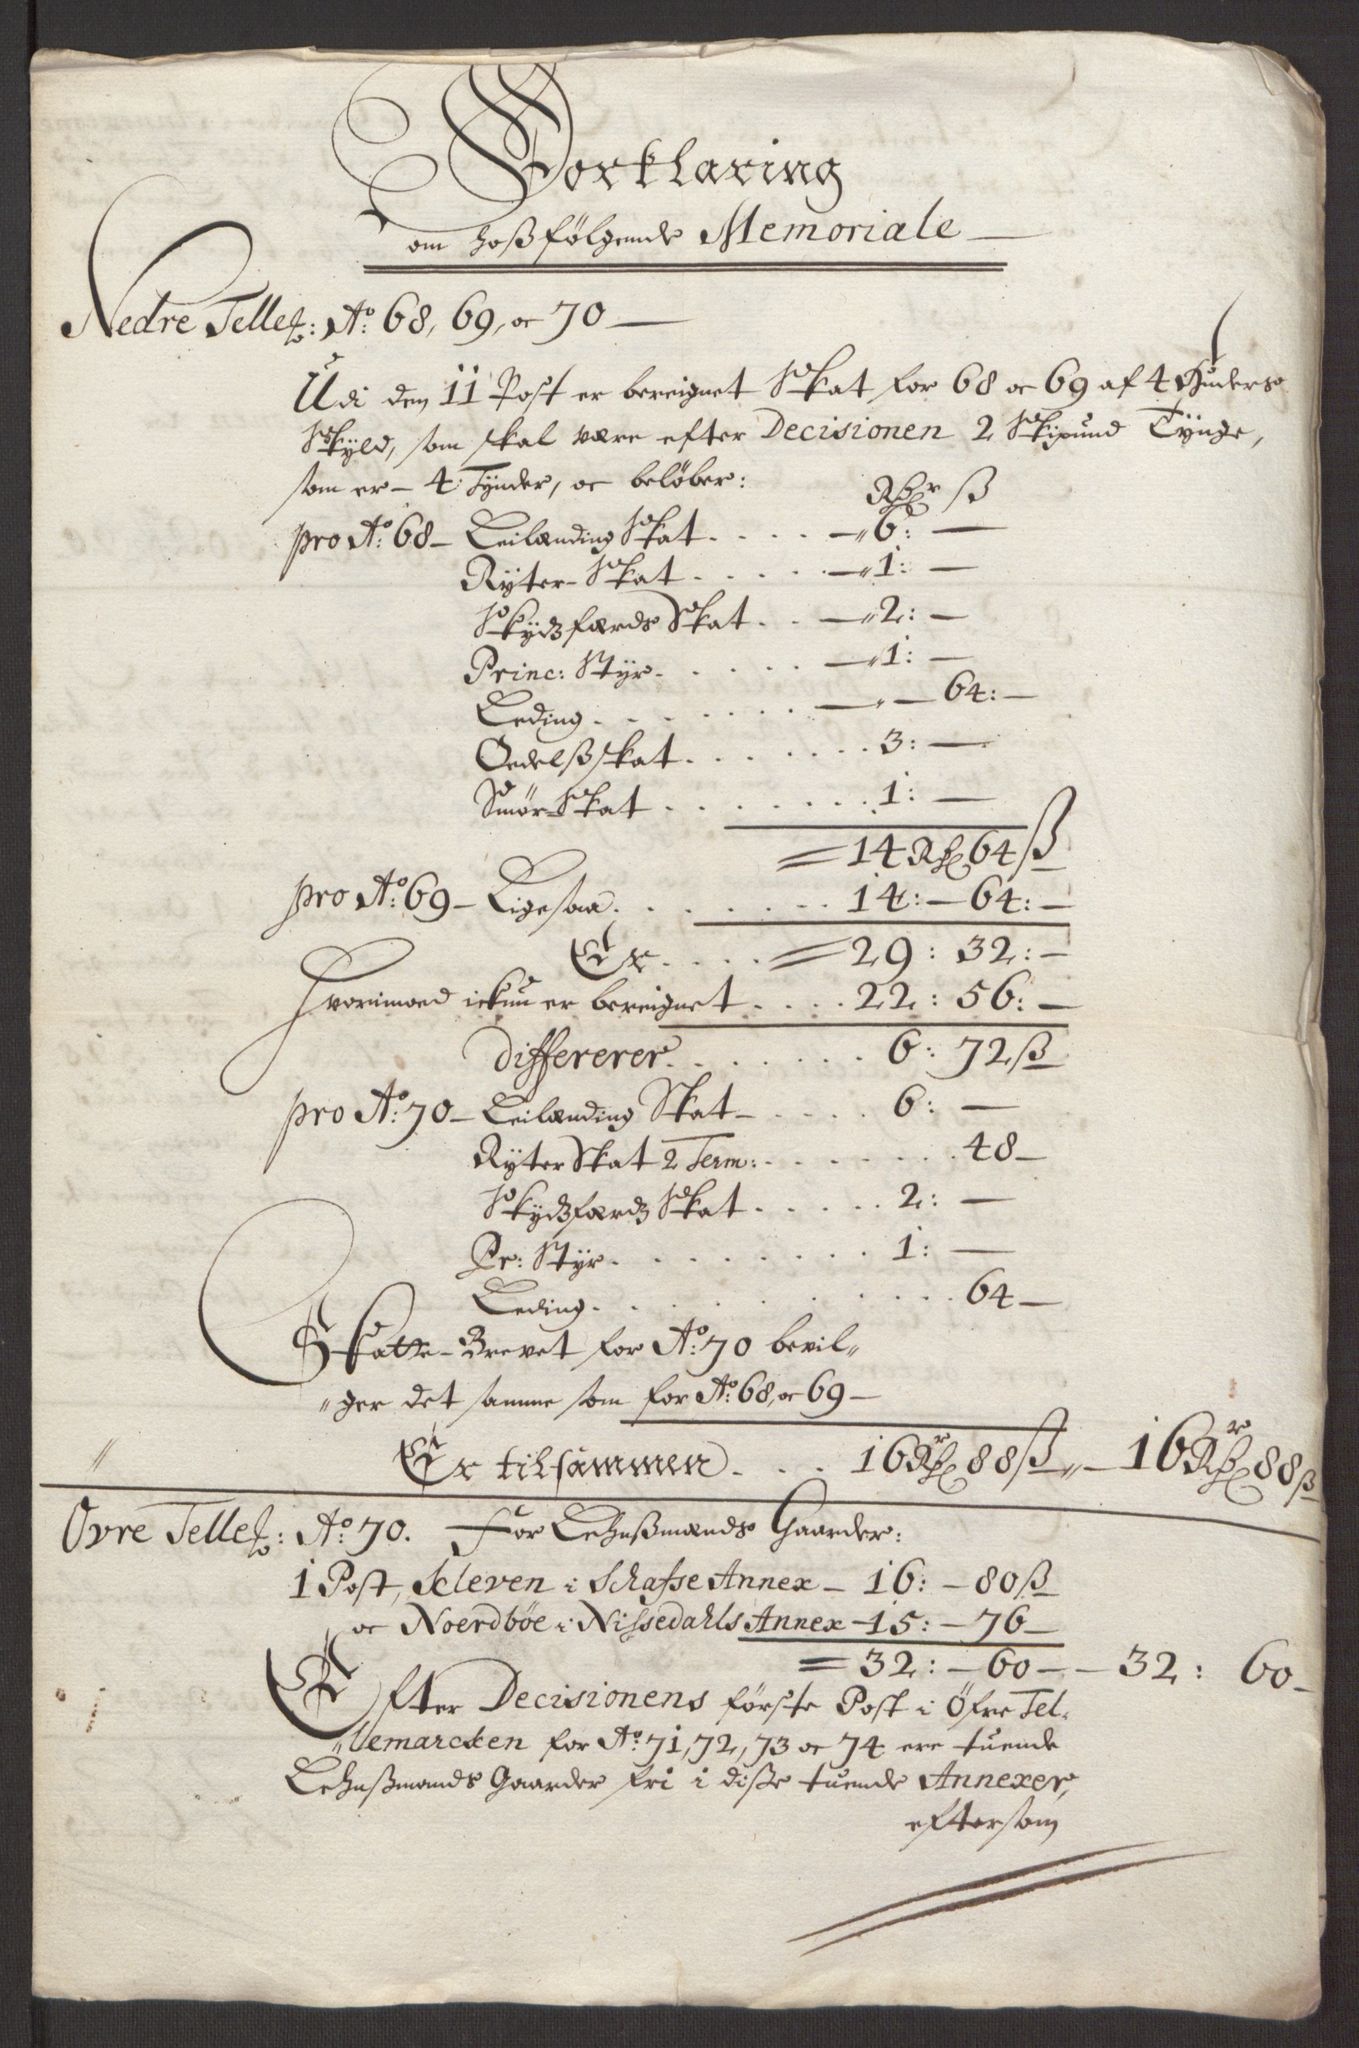 Forklaring
om hoßfølgende Memoriale
Nedre Telle: Ao: 68, 69, oc 70 —
Udi den 11 Post er bereignet Skat for 68 oc 69 af 4 Huders
Skyld, som skal være efter Decisionen 2 Skipund Tynge,
som er – 4 Tynder, oc beløber: Rdr ß
pro Ao: 68 – Leilænding Skat . . . . — 6: —
Rÿter-Skat . . . . . — 1: —
Skÿdzfærds Skat . . — 2: —
Princ: Styr . . . . . — 1: —
Leding . . . . . . — „ — 64: —
Oedelßskat . . . . . . . 3: —
Smør-Skat . . . . . . . 1: —
= 14 Rd 64 ß
pro Ao: 69 – Ligesaa . . . . . . . 14: — 64: —
Er . . . . = 29: 32: —
Hvorimoed ickun er bereignet . . . . 22: 56: —
differerer . . . . . . 6: 72 ß
pro Ao: 70 – Leilænding Skat – . . . . 6: —
Rÿter Skat 2 Term: . . . . . . 48 —
Skÿdzfærdz Skat . . . . . 2: —
Pr: Styr . . . . . . . 1: —
Leding . . . . . . . . . 64 —
Skatte-Brevet for Ao: 70 bevil„
„ger det samme som for Ao: 68, oc 69 —
„ Er tilsammen . . . 16 Rdr 88 ß „ — 16 Rdr 88 ß
Øvre Telle: Ao: 70. For Lehnßmænds Gaarder:
1 Post, Kleven i Schafse Annex – 16: – 80 ß
oc Noerdbøe i Nissedahls Annex – 15: – 76 —
= 32: – 60 – – 32: 60 –
Efter Decisionens første Post i Øfre Tel-
„lemarcken for Ao: 71, 72, 73 oc 74 ere tuende
Lehnßmands Gaarder fri i diße tuende Annexer,
eftersom